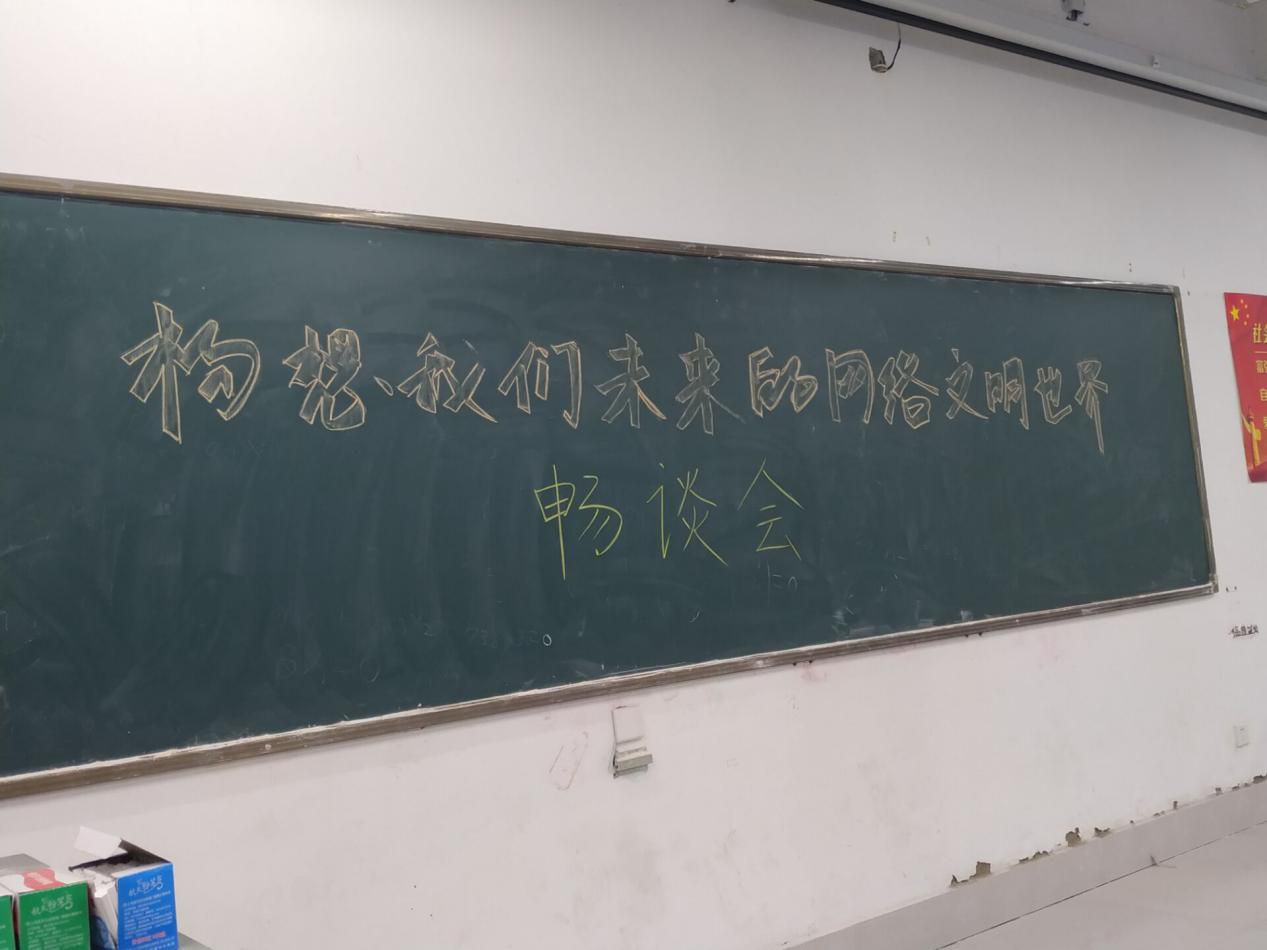 构想、我们未来的网络文明世界
畅谈会